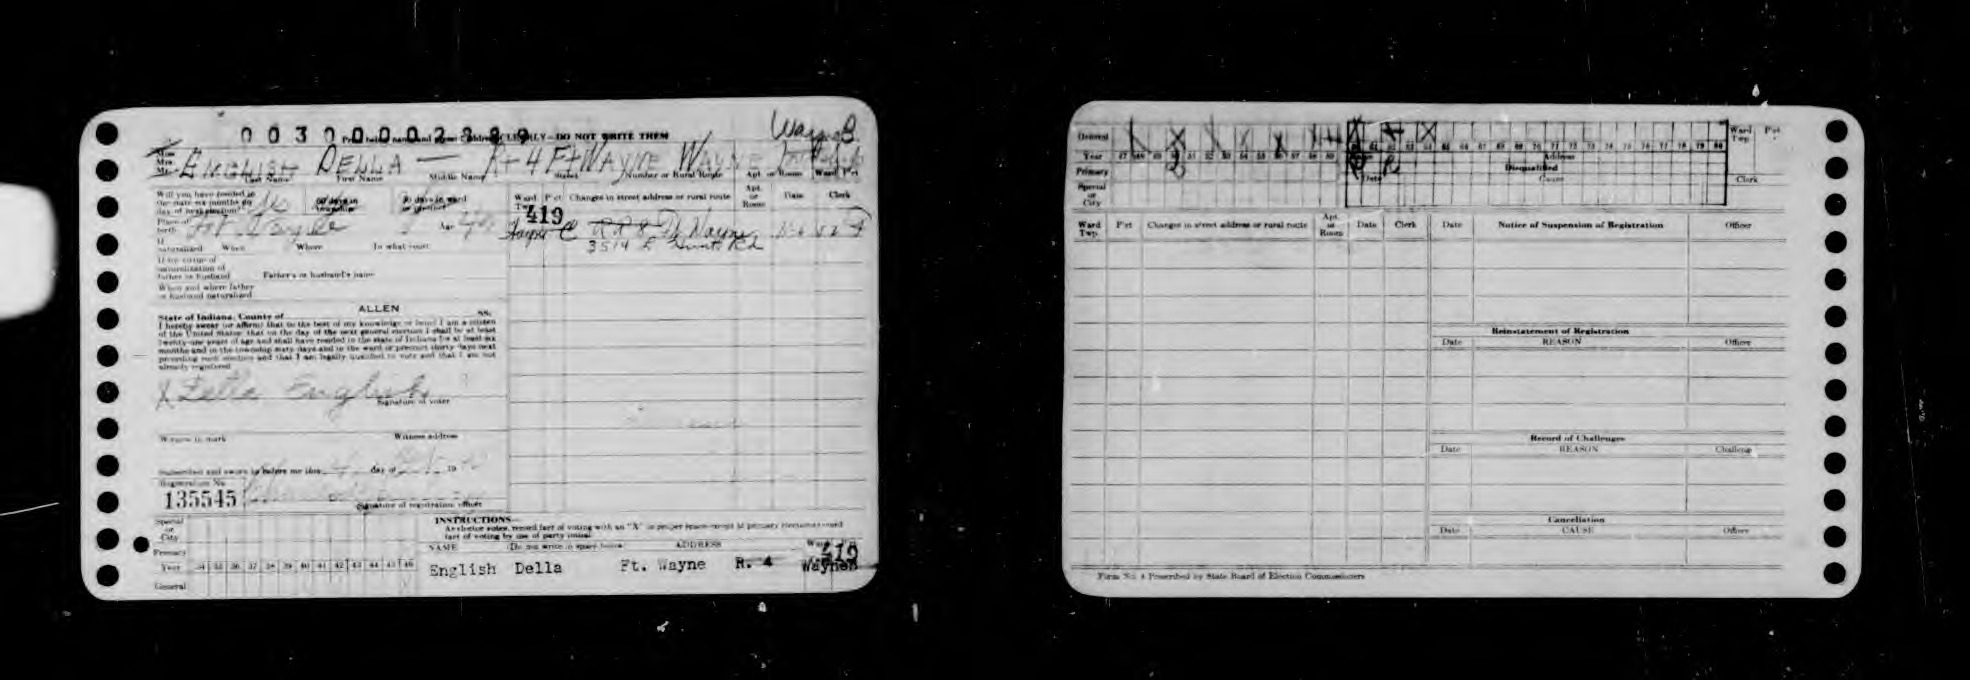 00300002889
Print both name and your address CLEARLY—DO NOT WRITE THEM
Wayne B
Miss
Mrs.
Mr.
ENGLISH DELLA — R+4 Ft WAYNE WAYNE
Last Name First Name Middle Name Street Number or Rural Route Apt. or Room Ward Pct
Will you have resided in
the state six months on
day of next election?
60 days in
township
30 days in ward
or precinct
Ward
Twp.
Pct
Changes in street address or rural route
Apt.
or
Room
Date
Clerk
419
Place of
birth
Ft. Wayne
Age
Wayne C R R 8 Ft Wayne
3514 E
Rd
If
naturalized When Where In what court
If by virtue of
naturalization of
father or husband Father's or husband's name
When and where father
or husband naturalized
ALLEN
State of Indiana, County of SS:
I hereby swear (or affirm) that to the best of my knowledge or belief I am a citizen
of the United States; that on the day of the next general election I shall be at least
twenty-one years of age and shall have resided in the state of Indiana for at least six
months and in the township sixty days and in the ward or precinct thirty days next
preceding such election and that I am legally qualified to vote and that I am not
already registered
X Della English
Signature of voter
Witness to mark Witness address
Subscribed and sworn to before me this day of 19
Registration No.
135545
Signature of registration officer
Special
or
City
Primary
Year 34 35 36 37 38 39 40 41 42 43 44 45 46
General
INSTRUCTIONS—
As elector votes, record fact of voting with an "X" in proper space except in primary elections record
fact of voting by use of party initial.
NAME (Do not write in space below) ADDRESS Ward Pct
419
English Della Ft. Wayne R. 4 Wayne B
General
Year 47 48 49 50 51 52 53 54 55 56 57 58 59 60 61 62 63 64 65 66 67 68 69 70 71 72 73 74 75 76 77 78 79 80
Primary
Special
or
City
Ward
Twp.
Pct
Address
Disqualified
Date Cause Clerk
Ward
Twp.
Pct
Changes in street address or rural route
Apt.
or
Room
Date
Clerk
Date Notice of Suspension of Registration Officer
Reinstatement of Registration
Date REASON Officer
Record of Challenges
Date REASON Challenger
Cancellation
Date CAUSE Officer
Form No. 4 Prescribed by State Board of Election Commissioners